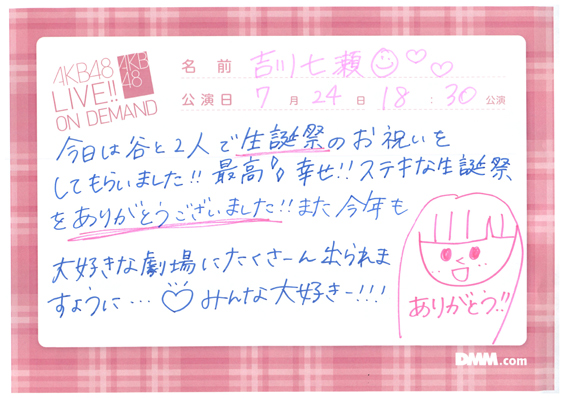 AKB48
LIVE!!
ON DEMAND
AKB
48
名 前 吉川七瀬
公演日 7 月 24 日 18 : 30 公演
今日は谷と2人で生誕祭のお祝いを
してもらいました!! 最高 幸せ!! ステキな生誕祭
をありがとうございました!! また今年も
大好きな劇場にたくさーん出られま
すように… みんな大好きー!!!
ありがとう!!
DMM.com